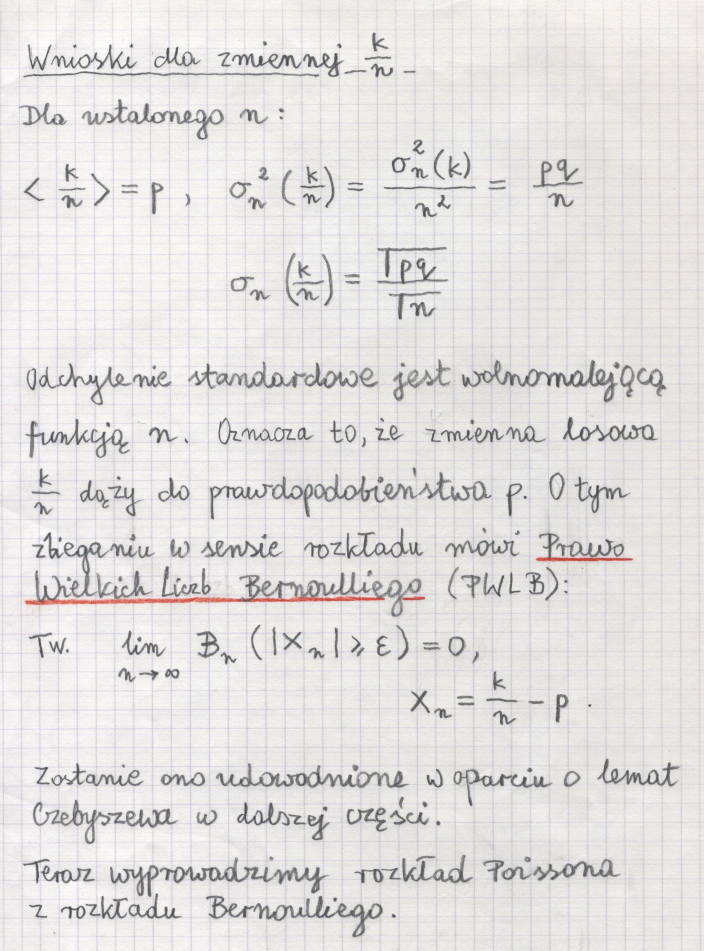 Wnioski dla zmiennej k/n
Dla ustalonego n:
< k/n > = p , σₙ² (k/n) = σₙ²(k)/n² = pq/n
σₙ (k/n) = √pq/√n
Odchylenie standardowe jest wolnomalejącą
funkcją n. Oznacza to, że zmienna losowa
k/n dąży do prawdopodobieństwa p. O tym
zbieganiu w sensie rozkładu mówi Prawo
Wielkich Liczb Bernoulliego (PWLB):
Tw. lim n→∞ Bₙ (|Xₙ| ≥ ε) = 0,
Xₙ = k/n - p .
Zostanie ono udowodnione w oparciu o lemat
Czebyszewa w dalszej części.
Teraz wyprowadzimy rozkład Poissona
z rozkładu Bernoulliego.